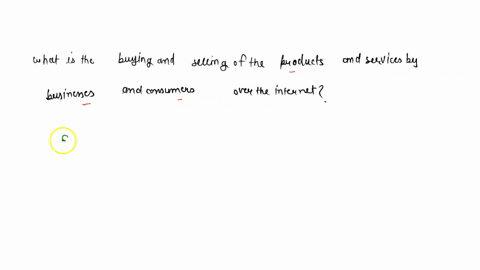 what is the buying and selling of the products and services by
businesses and consumers over the internet?